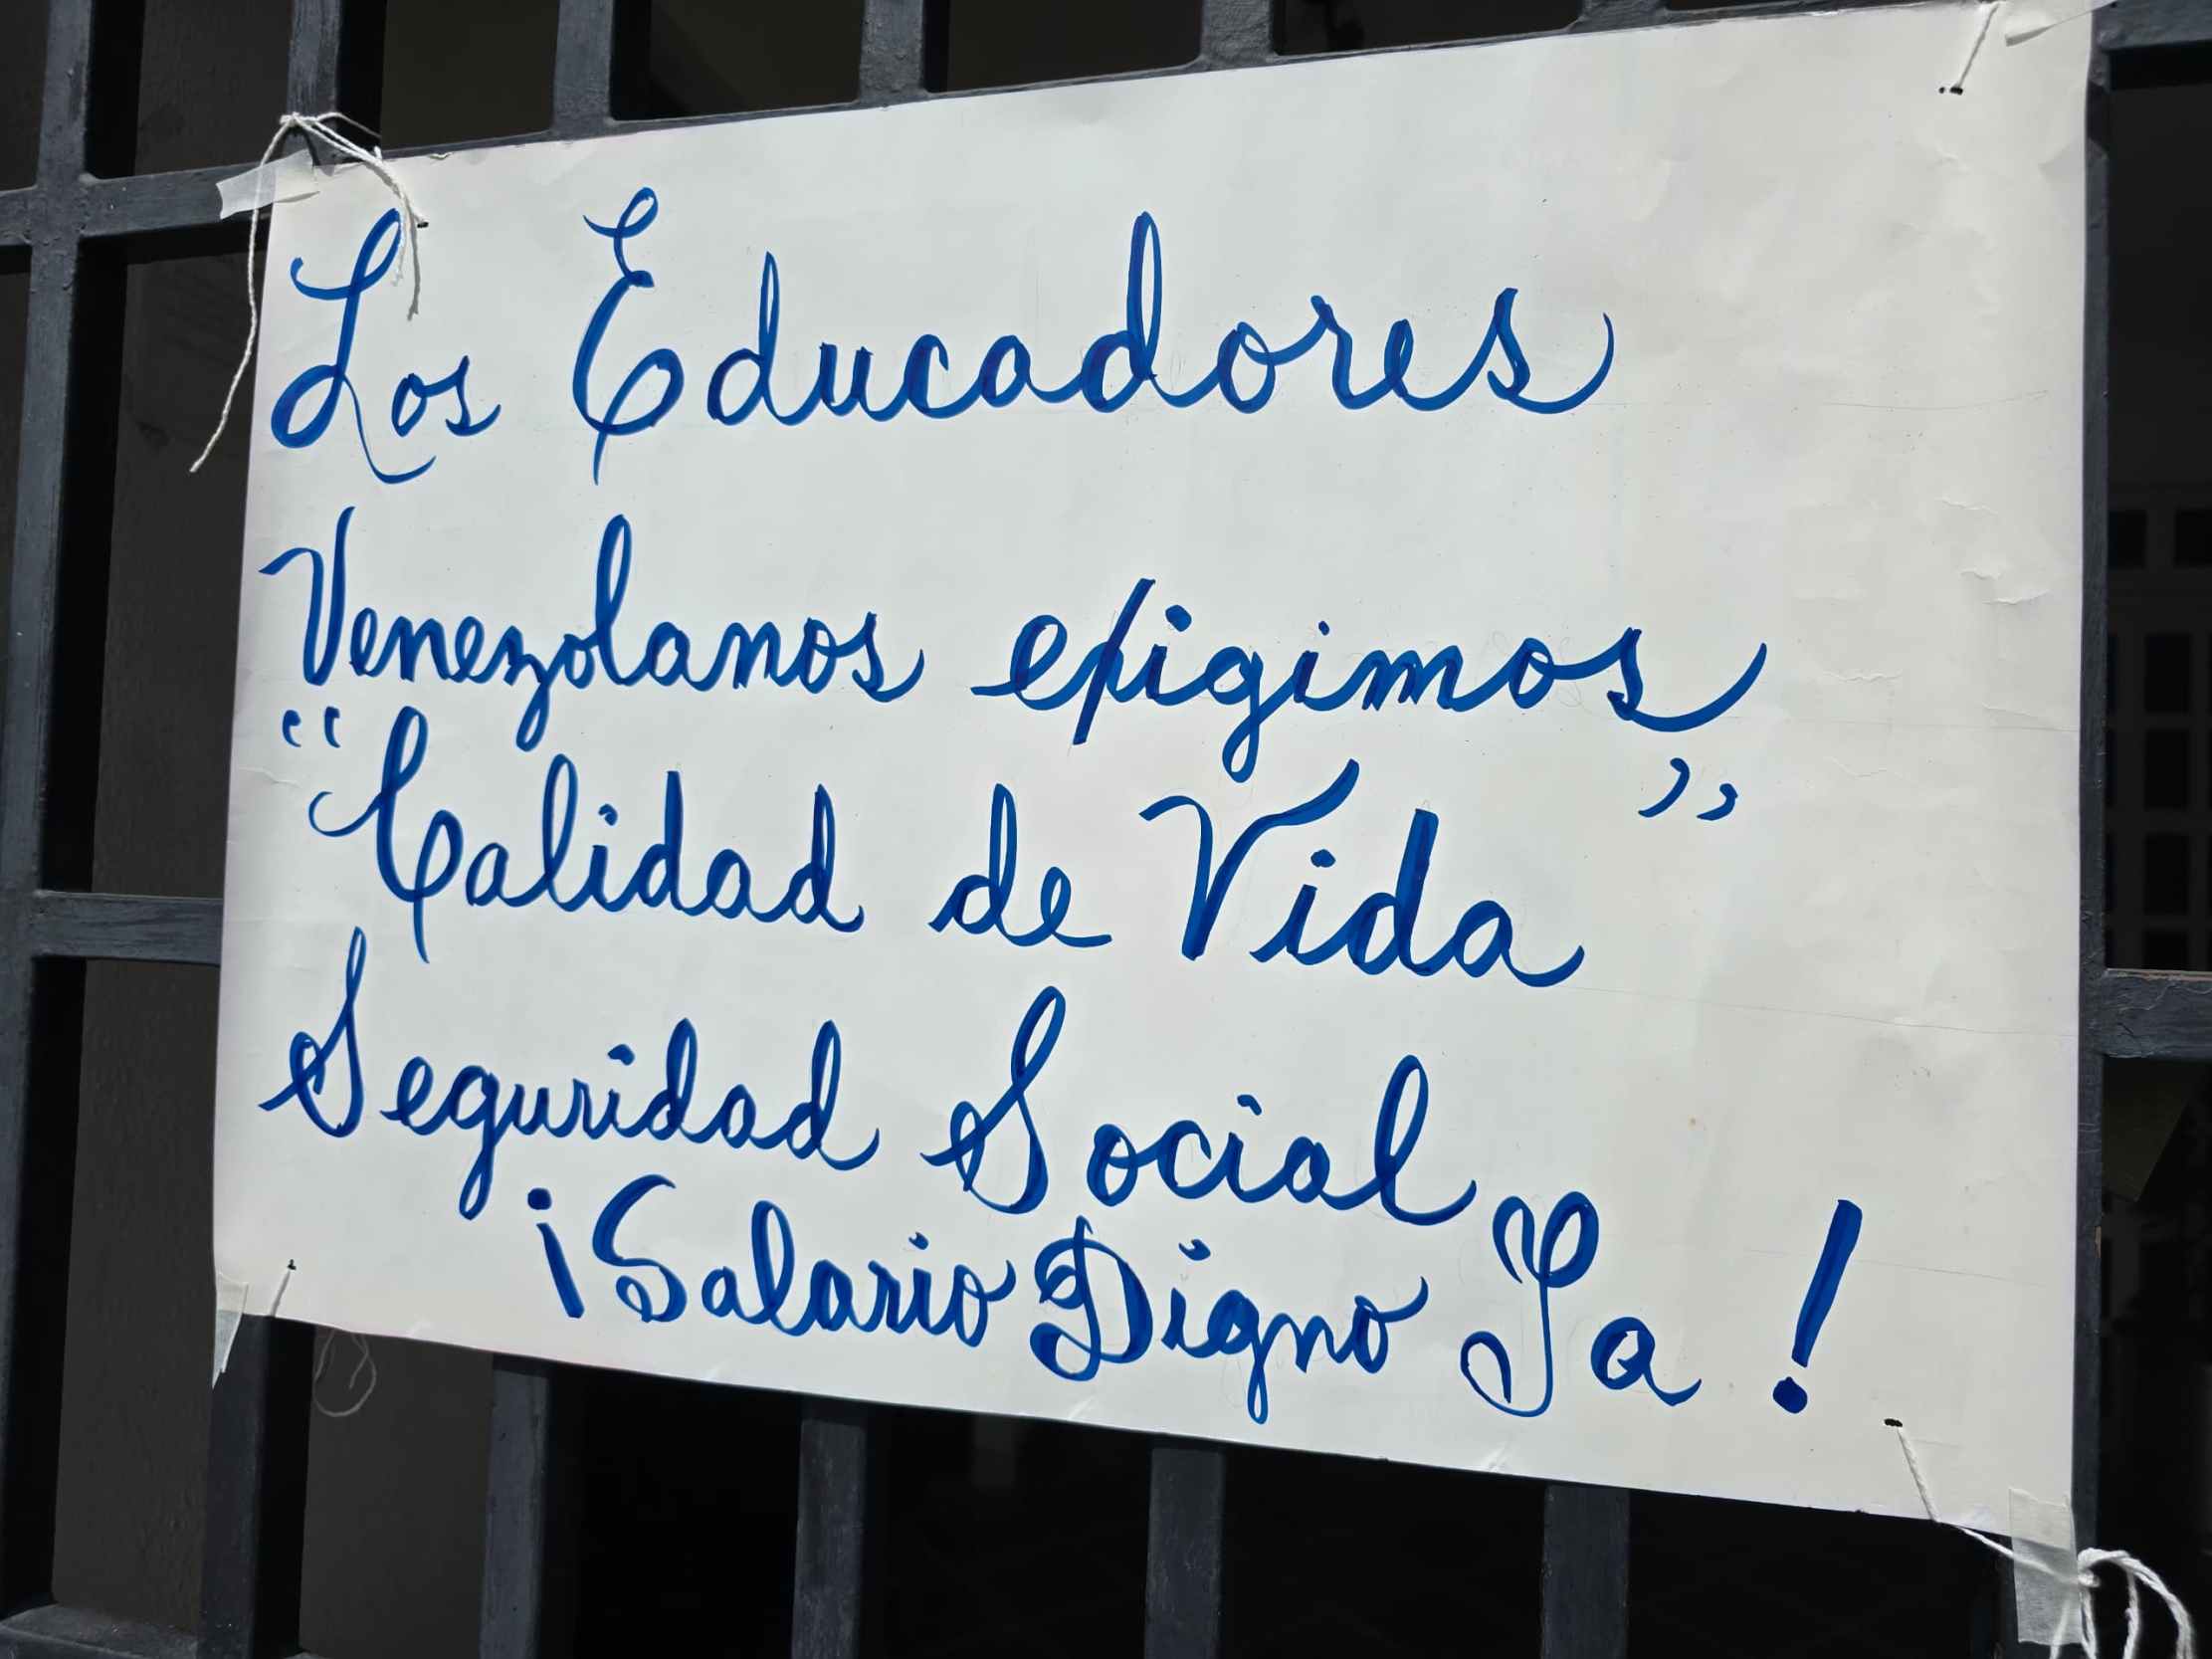 Los Educadores
Venezolanos exigimos
“Calidad de Vida”
Seguridad Social
¡Salario Digno Ya!